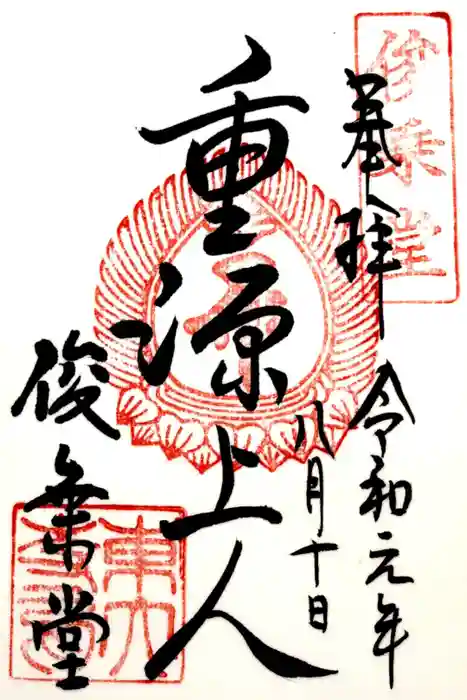 俊乗堂
奉拝
令和元年
八月十日
重源上人
俊乗堂
東大